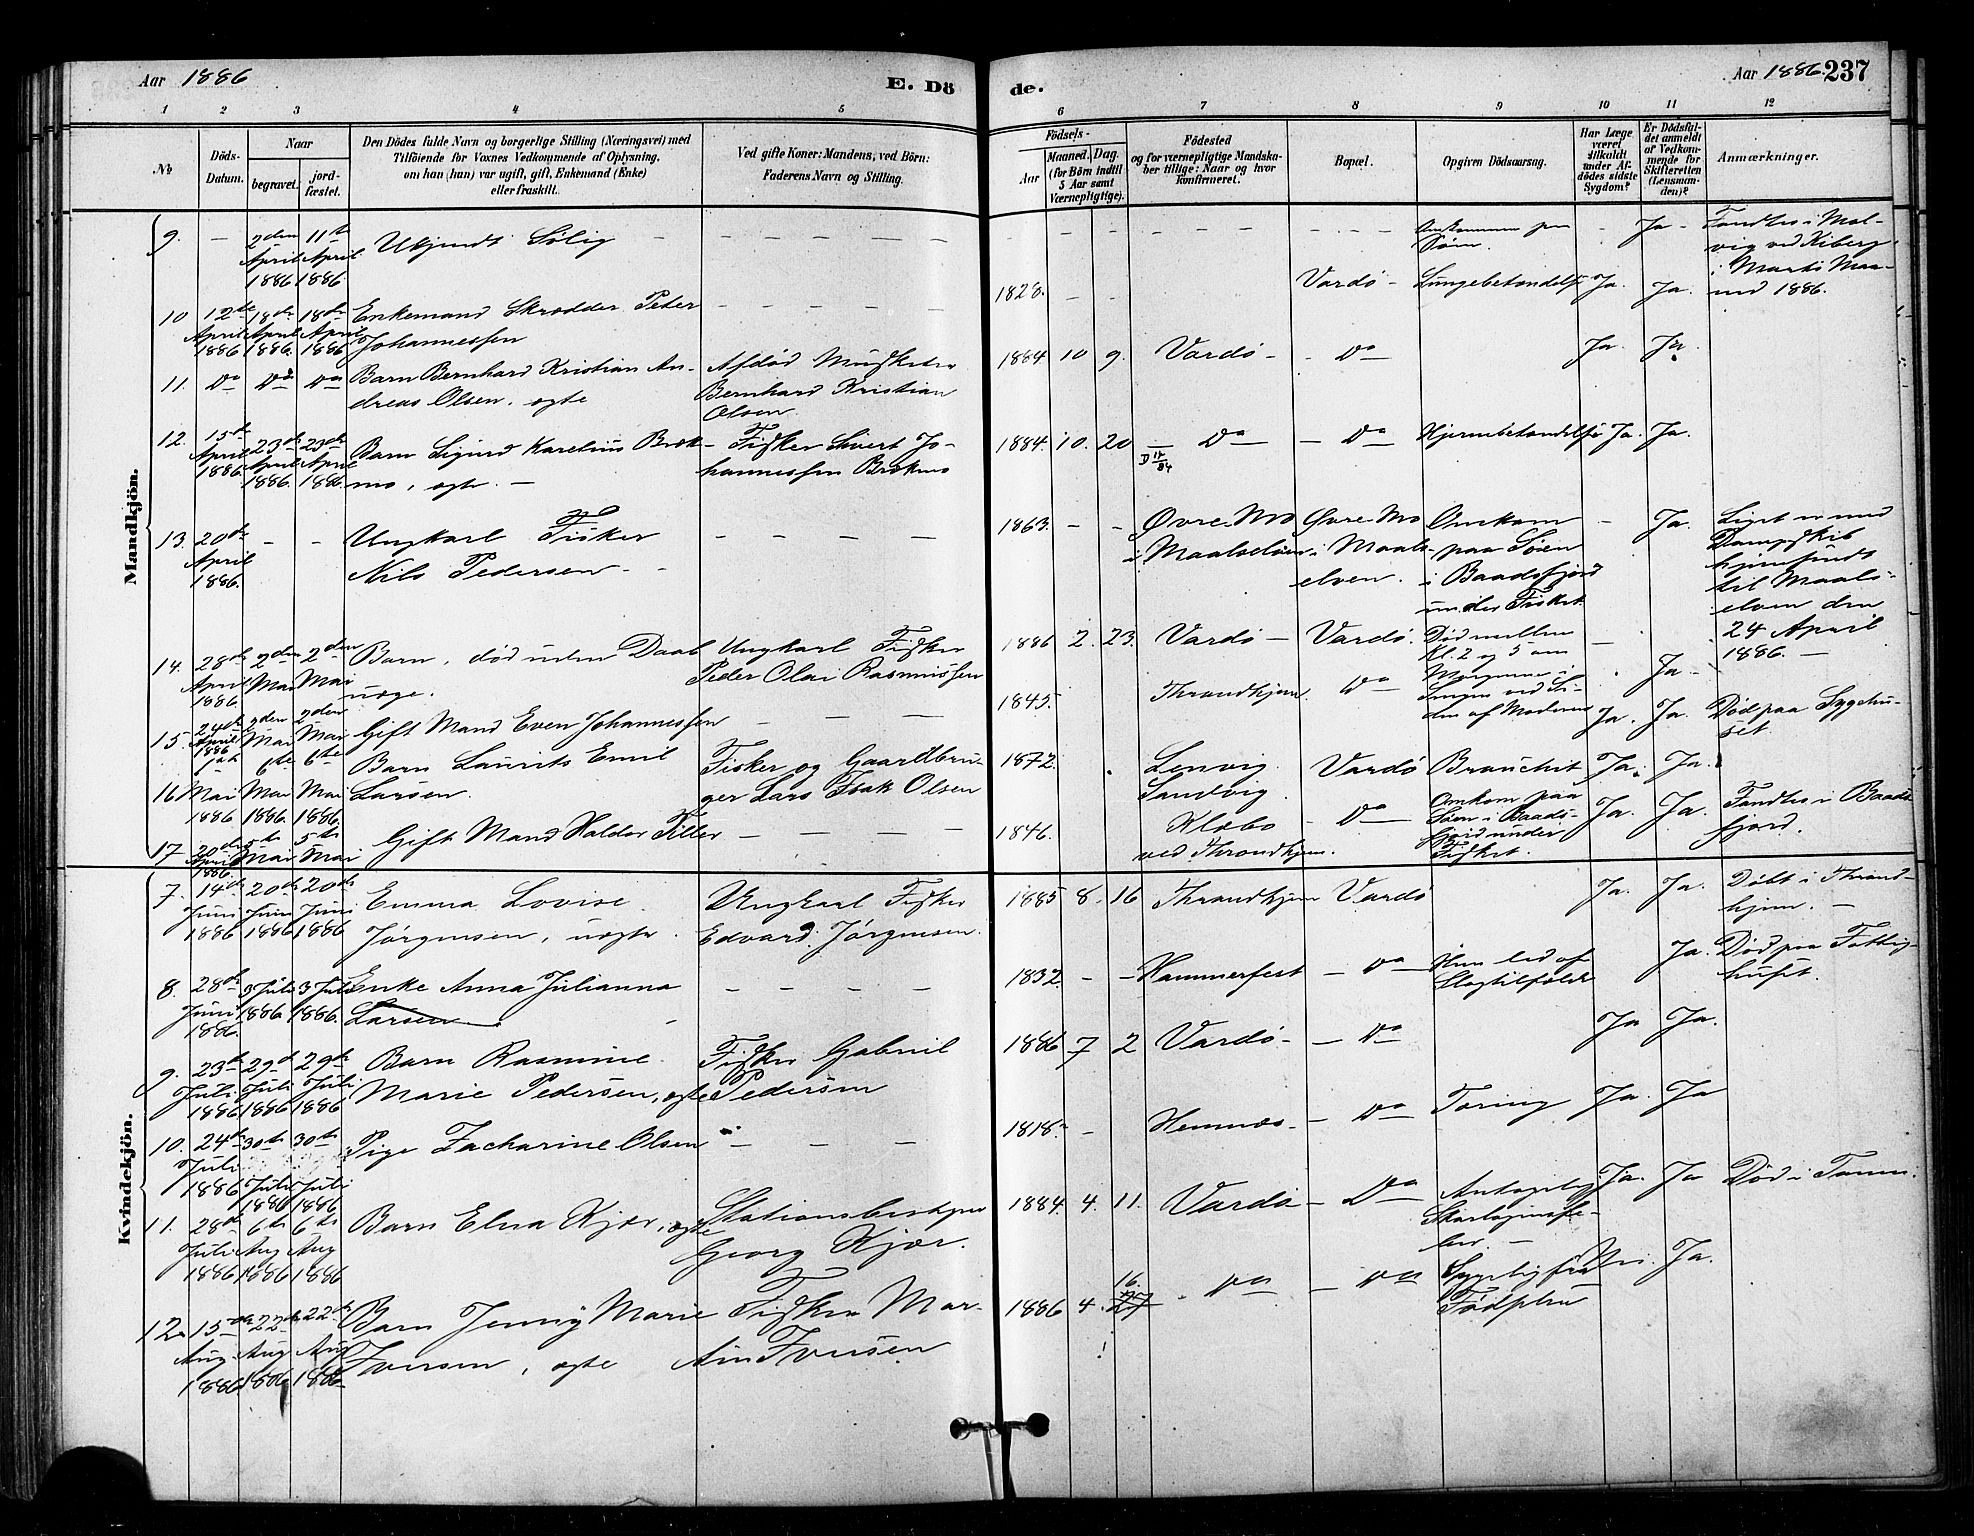 Aar 1886
E. Dö
de.
Aar 1886. 237
1 2 3 4 5 6 7 8 9 10 11 12
№
Döds-
Datum.
Naar
begravet.
jord-
fæstet.
Den Dödes fulde Navn og borgerlige Stilling (Næringsvei) med
Tilföiende for Voxnes Vedkommende af Oplysning,
om han (hun) var ugift, gift, Enkemand (Enke)
eller fraskilt.
Ved gifte Koner: Mandens, ved Börn:
Faderens Navn og Stilling.
Födsels-
Aar
Maaned. Dag.
(for Börn indtil
5 Aar samt
Værnepligtige).
Födested
og for værnepligtige Mandska-
ber tillige: Naar og hvor
konfirmeret.
Bopæl.
Opgiven Dödsaarsag.
Har Læge
været
tilkaldt
under Af-
dödes sidste
Sygdom?
Er Dödsfal-
det anmeldt
af Vedkom-
mende for
Skifteretten
(Lensman-
den)?
Anmærkninger.
Mandkjön.
9. – 2den 11te Ukjendt Sølig – – – – –
April April
1886 1886
Omkommen paa
Søen. – Ja –
Fandtes i Mal-
vig ved Kiberg
i Marts Maa-
ned 1886.
10 12te 18de 18de Enkemand Skrædder Peter
April April April Johannessen
1886 1886. 1886
1828. – – Vardø – Lungebetændelse Ja. Ja.
11. Do Do Do Barn Bernhard Kristian An-
dreas Olsen, ægte
Afdød Musketer
Bernhard Kristian
Olsen
1884 10 9. Vardø – – Do Ja. Ja.
12. 15de 23de 23de Barn Sigurd Karelius Brek-
April April April mo, ægte. –
1886. 1886. 1886.
Fisker Sivert Jo-
hannessen Brekmo
1884. 10. 20 – Do – – Do Hjernebetændelse Ja. Ja.
13. 20de – – Ungkarl Fisker
April Nils Pedersen – –
1886.
1863. – – Øvre-Mo Øvre-Mo Omkom – Ja.
i Maalselven i Maals- paa Søen
elven. i Baadsfjord
under Fisket.
Liget er med
Dampskib
hjemsendt
til Maals-
elven den
24 April
1886. –
14. 28de 2den 2den Barn, død uden Daab
April Mai Mai uægte.
1886
Ungkarl Fisker
Peder Olai Rasmussen
1886 2. 23. Vardø – Vardø. Død mellem
Kl. 2 og 5 om
Morgenen i
Sengen ved Si-
den af Moderen
Ja.
15. 24de 2den 2den Gift Mand Even Johannessen
April Mai Mai
1886
1845. Throndhjem. Do Ja. Ja. Død paa Sygehu-
set.
16 1ste 6te 6te Barn Laurits Emil
Mai Mai Mai Larsen.
1886 1886. 1886.
Fisker og Gaardbru-
ger Lars Isak Olsen
1872. Lenvig. Vardø Ja. Ja.
Sandvig.
17 20de 5te 5te Gift Mand Haldor Tiller – – –
April Mai Mai
1886.
1846. Klæbo – Do – Omkom paa Ja. Ja.
ved Throndhjem. Søen i Baads-
fjord under
Fisket.
Fandtes i Baads-
fjord.
Kvindekjön.
7. 14de 20de 20de Emma Lovise
Juni Juni Juni Jørgensen, uægte
1886 1886 1886
Ungkarl Fisker
Edvard Jørgensen.
1885 8. 16 Throndhjem Vardø Ja. Ja. Døbt i Thrond-
hjem. –
8. 28de 3 Juli 3 Juli Enke Anna Julianna
Juni 1886 1886. Larsen
1886.
1832. – – Hammerfest – Do – Hun led af Ja.
Slagtilfælde
Død paa Fattig-
huset.
9. 23de 29de 29de Barn Rasmine
Juli Juli Juli Marie Pedersen, ægte
1886 1886 1886
Fisker Gabriel
Pedersen
1886 7 2 Vardø – – Do Ja Ja.
10. 24de 30te 30te Pige Zacharine Olsen – – –
Juli Juli Juli
1886 1886 1886
1818. – Hemnæs – – Do Tæring Ja. Ja
11. 28de 6te 6te Barn Elna Kjær, ægte
Juli Aug Aug
1886 1886 1886
Stationsbestyrer
Georg Kjær.
1884. 4. 11. Vardø – Do Antagelig Ja. Ja
Skarlaginsfe-
ber. –
12. 15de 22de 22de Barn Jenny Marie
Aug. Aug Aug Iversen, ægte
1886 1886 1886
Fisker Mar-
Iversen
1886 4. 16. 27 Do – Do Sygelig fra Nei. Ja.
Fødselen